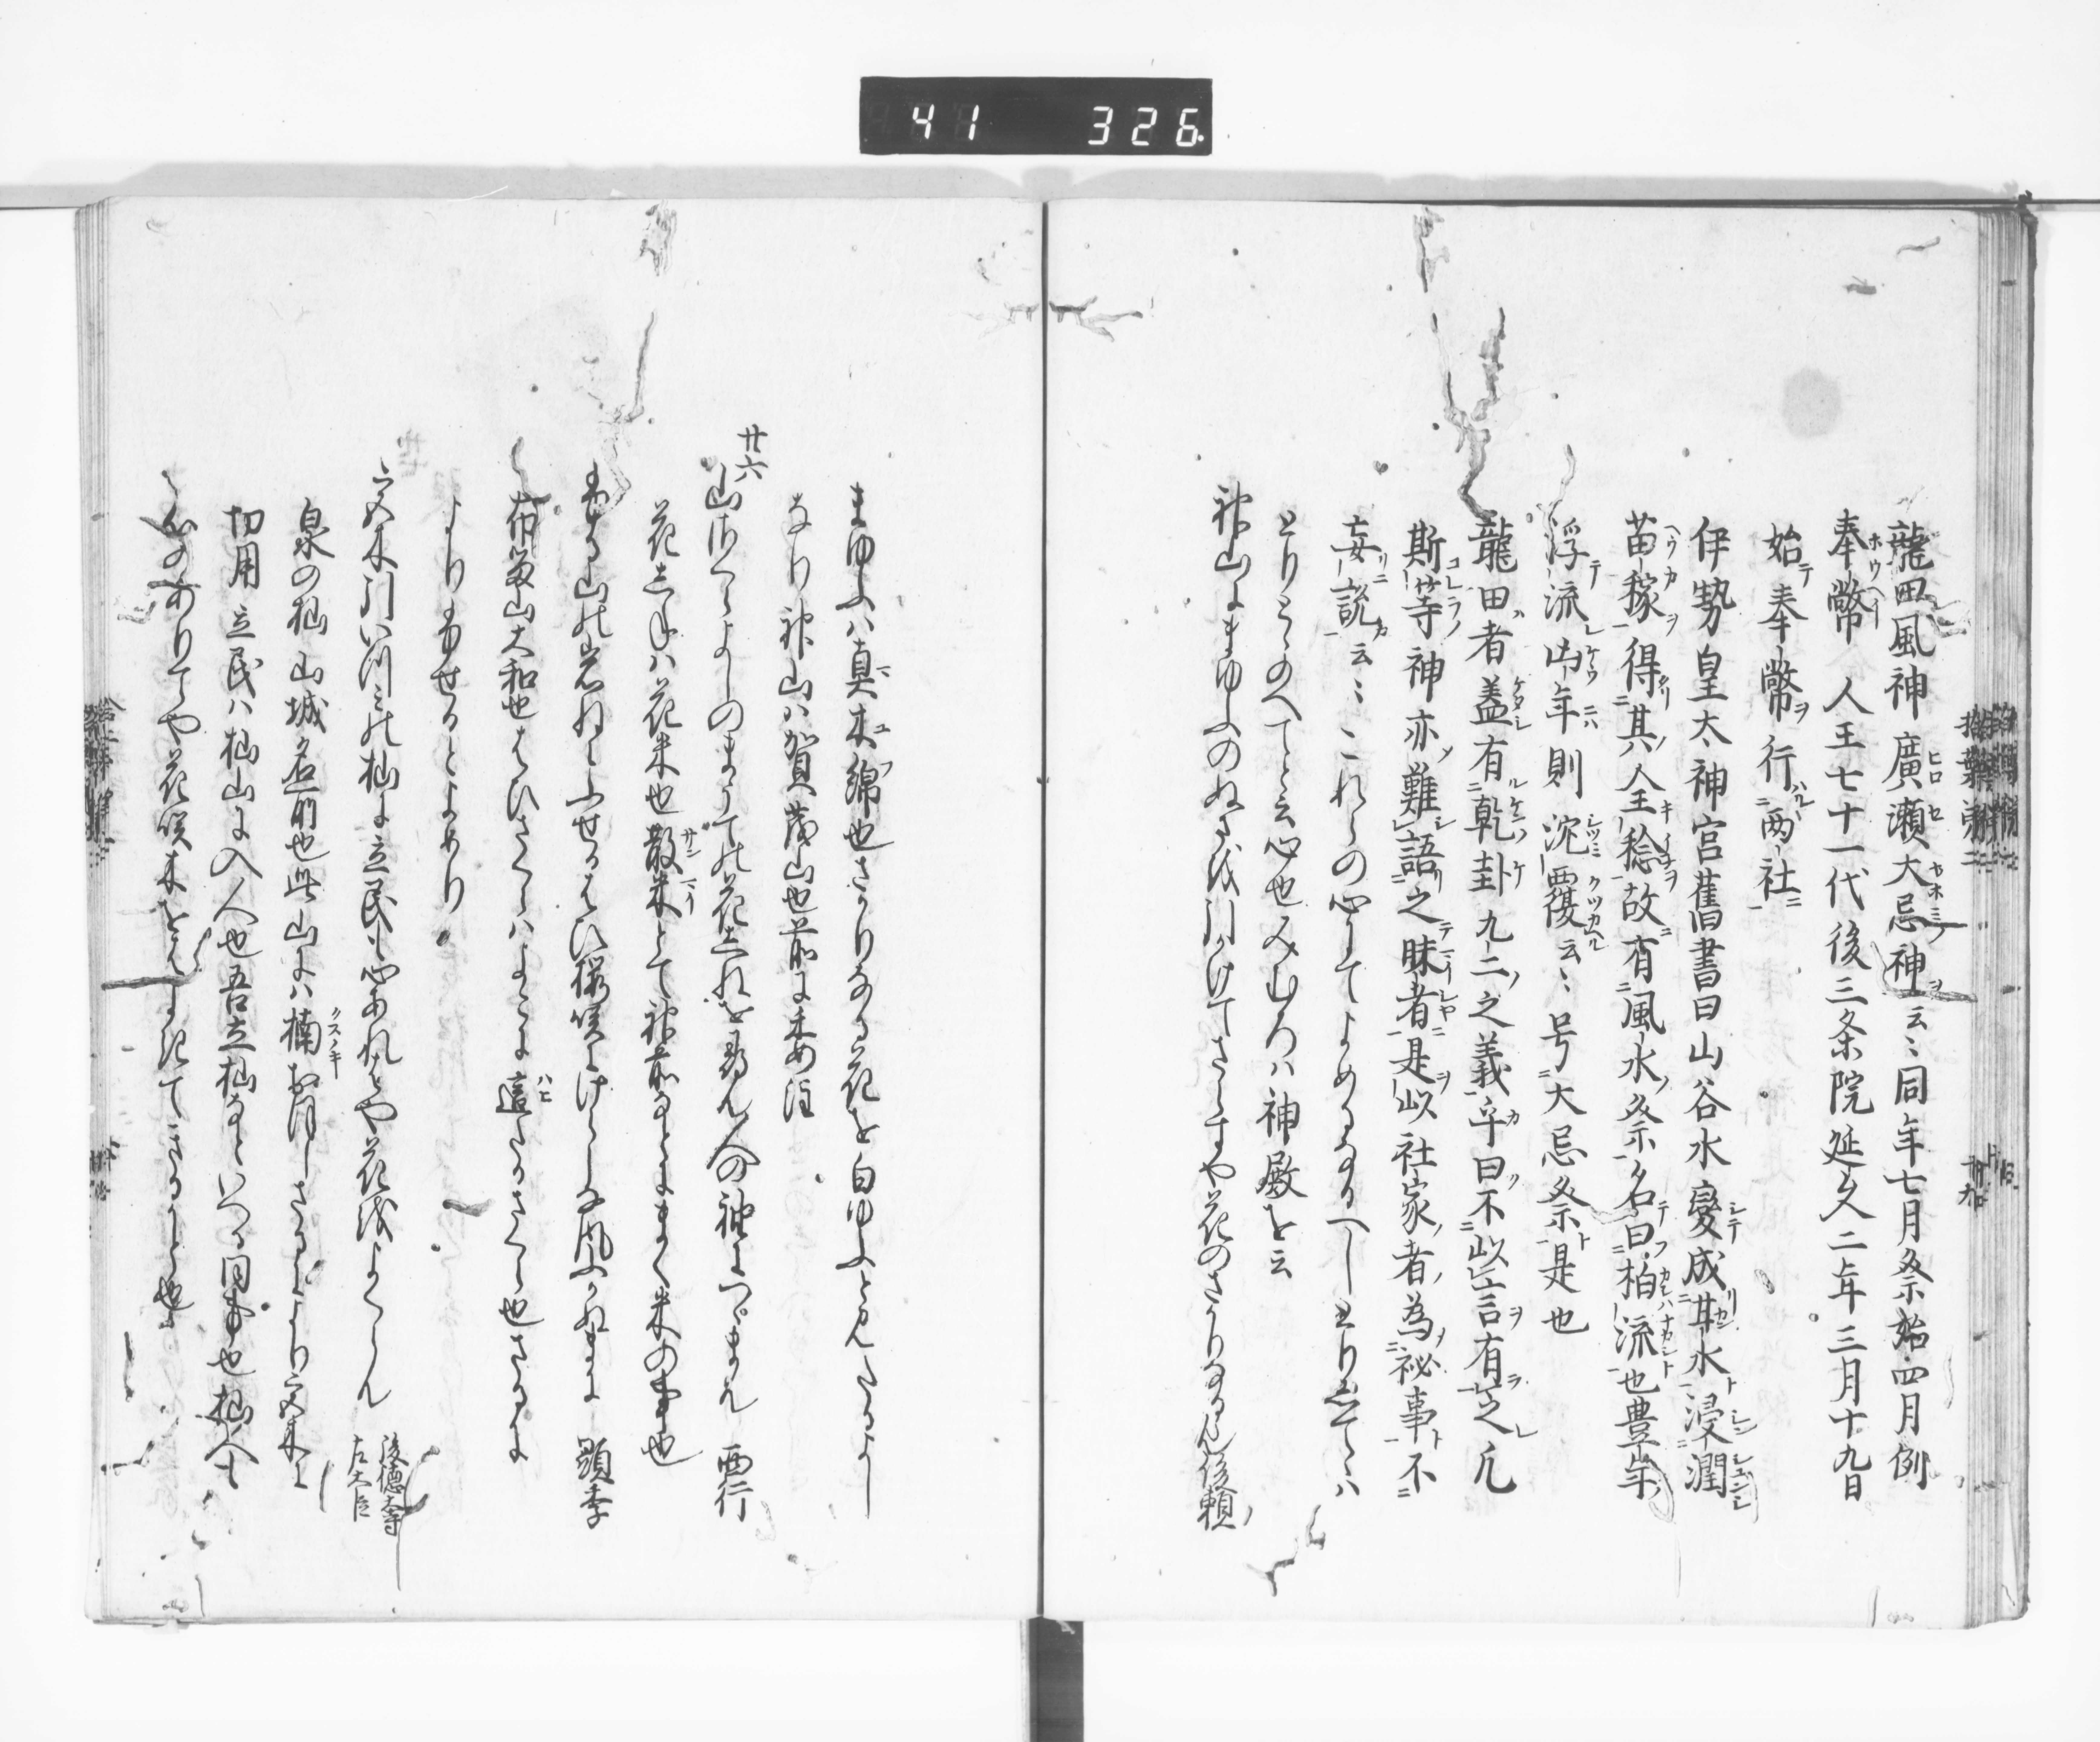 41 326
龍田風神廣瀬大忌神云〻同年七月祭始四月例
奉幣人王七十一代後三条院延久二年三月十九日
始奉幣行両社
伊勢皇太神宮舊書曰山谷水變成耳水浸潤
苗稼得其全稔故有風水祭名曰柏流也豊年
浮流凶年則沈覆云〻号大忌祭是也
龍田者盖有乾卦九二之義卒曰不以言有之凡
斯等神亦難語之昧者是以社家者為祕事不
妄説云〻これらの心にてよめるなるへしとりしてゝハ
とりとゝのへてと云心也みむろハ神殿を云
神山にまゆふのぬさ引かけてさらすや花のさかりなるらん俊頼
まゆふハ真木綿也さかりなる花を白ゆふと見たるよし
なり神山ハ賀茂山也前に委注
廿六
山さくらよしのまうての花しねを尋ん人の袖につゝまん 西行
花しねハ花米也散米とて神前なとにまく米の事也
山の岩ねにふせるはひ桜咲にけらしな風ふかぬまに 顕季
布留山大和也はひさくらハよこに這たるさくら也さるに
よりふせるとよめり
宮木引いつみの杣に立民も心あれとや花をよくらん 後徳大寺左大臣
泉の杣山城名所也此山にハ楠おほしさるにより宮木に
切用立民ハ杣山に入人也吾立杣なといへる同事也杣人も
心のありてや花咲木をはよきてきるらと也